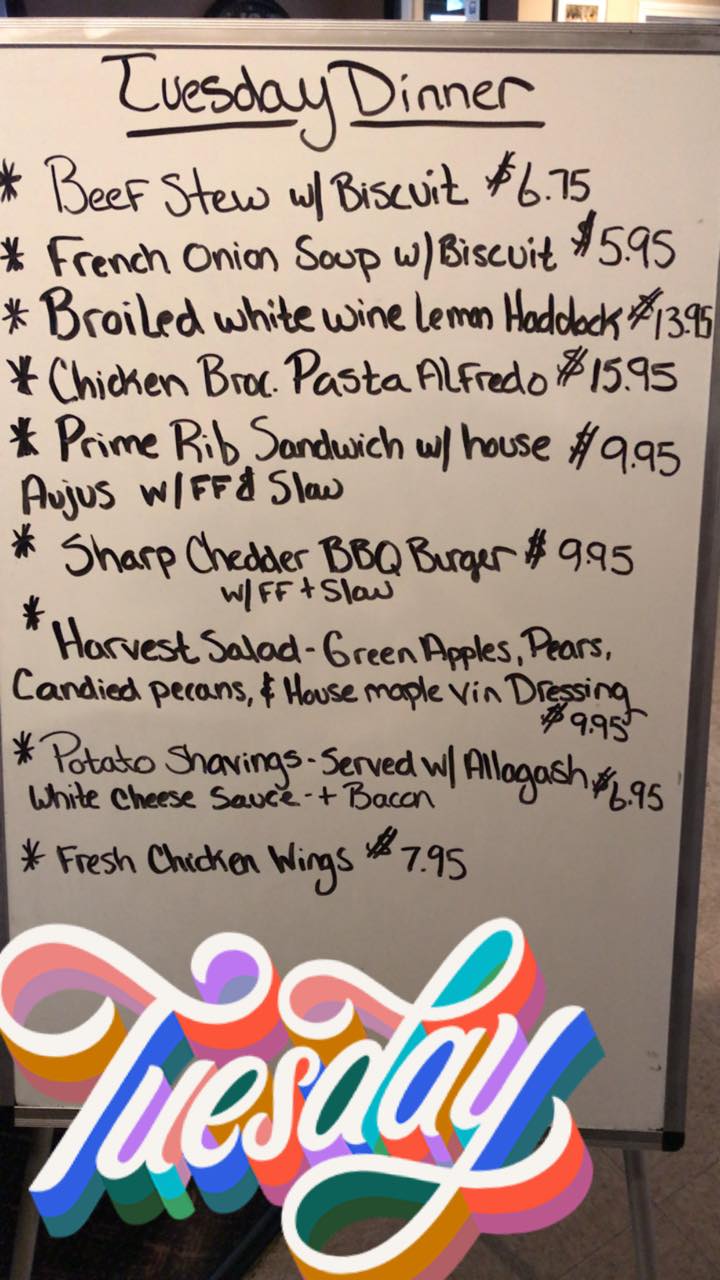 Tuesday Dinner
* Beef Stew w/ Biscuit $6.75
* French Onion Soup w/ Biscuit $5.95
* Broiled white wine lemon Haddock $13.95
* Chicken Broc. Pasta Alfredo $15.95
* Prime Rib Sandwich w/ house $9.95
Aujus w/ FF & Slaw
* Sharp Chedder BBQ Burger $9.95
w/ FF + Slaw
* Harvest Salad - Green Apples, Pears,
Candied pecans, & House maple Vin Dressing
$9.95
* Potato Shavings - Served w/ Allagash $6.95
White Cheese Sauce - + Bacon
* Fresh Chicken Wings $7.95
Tuesday